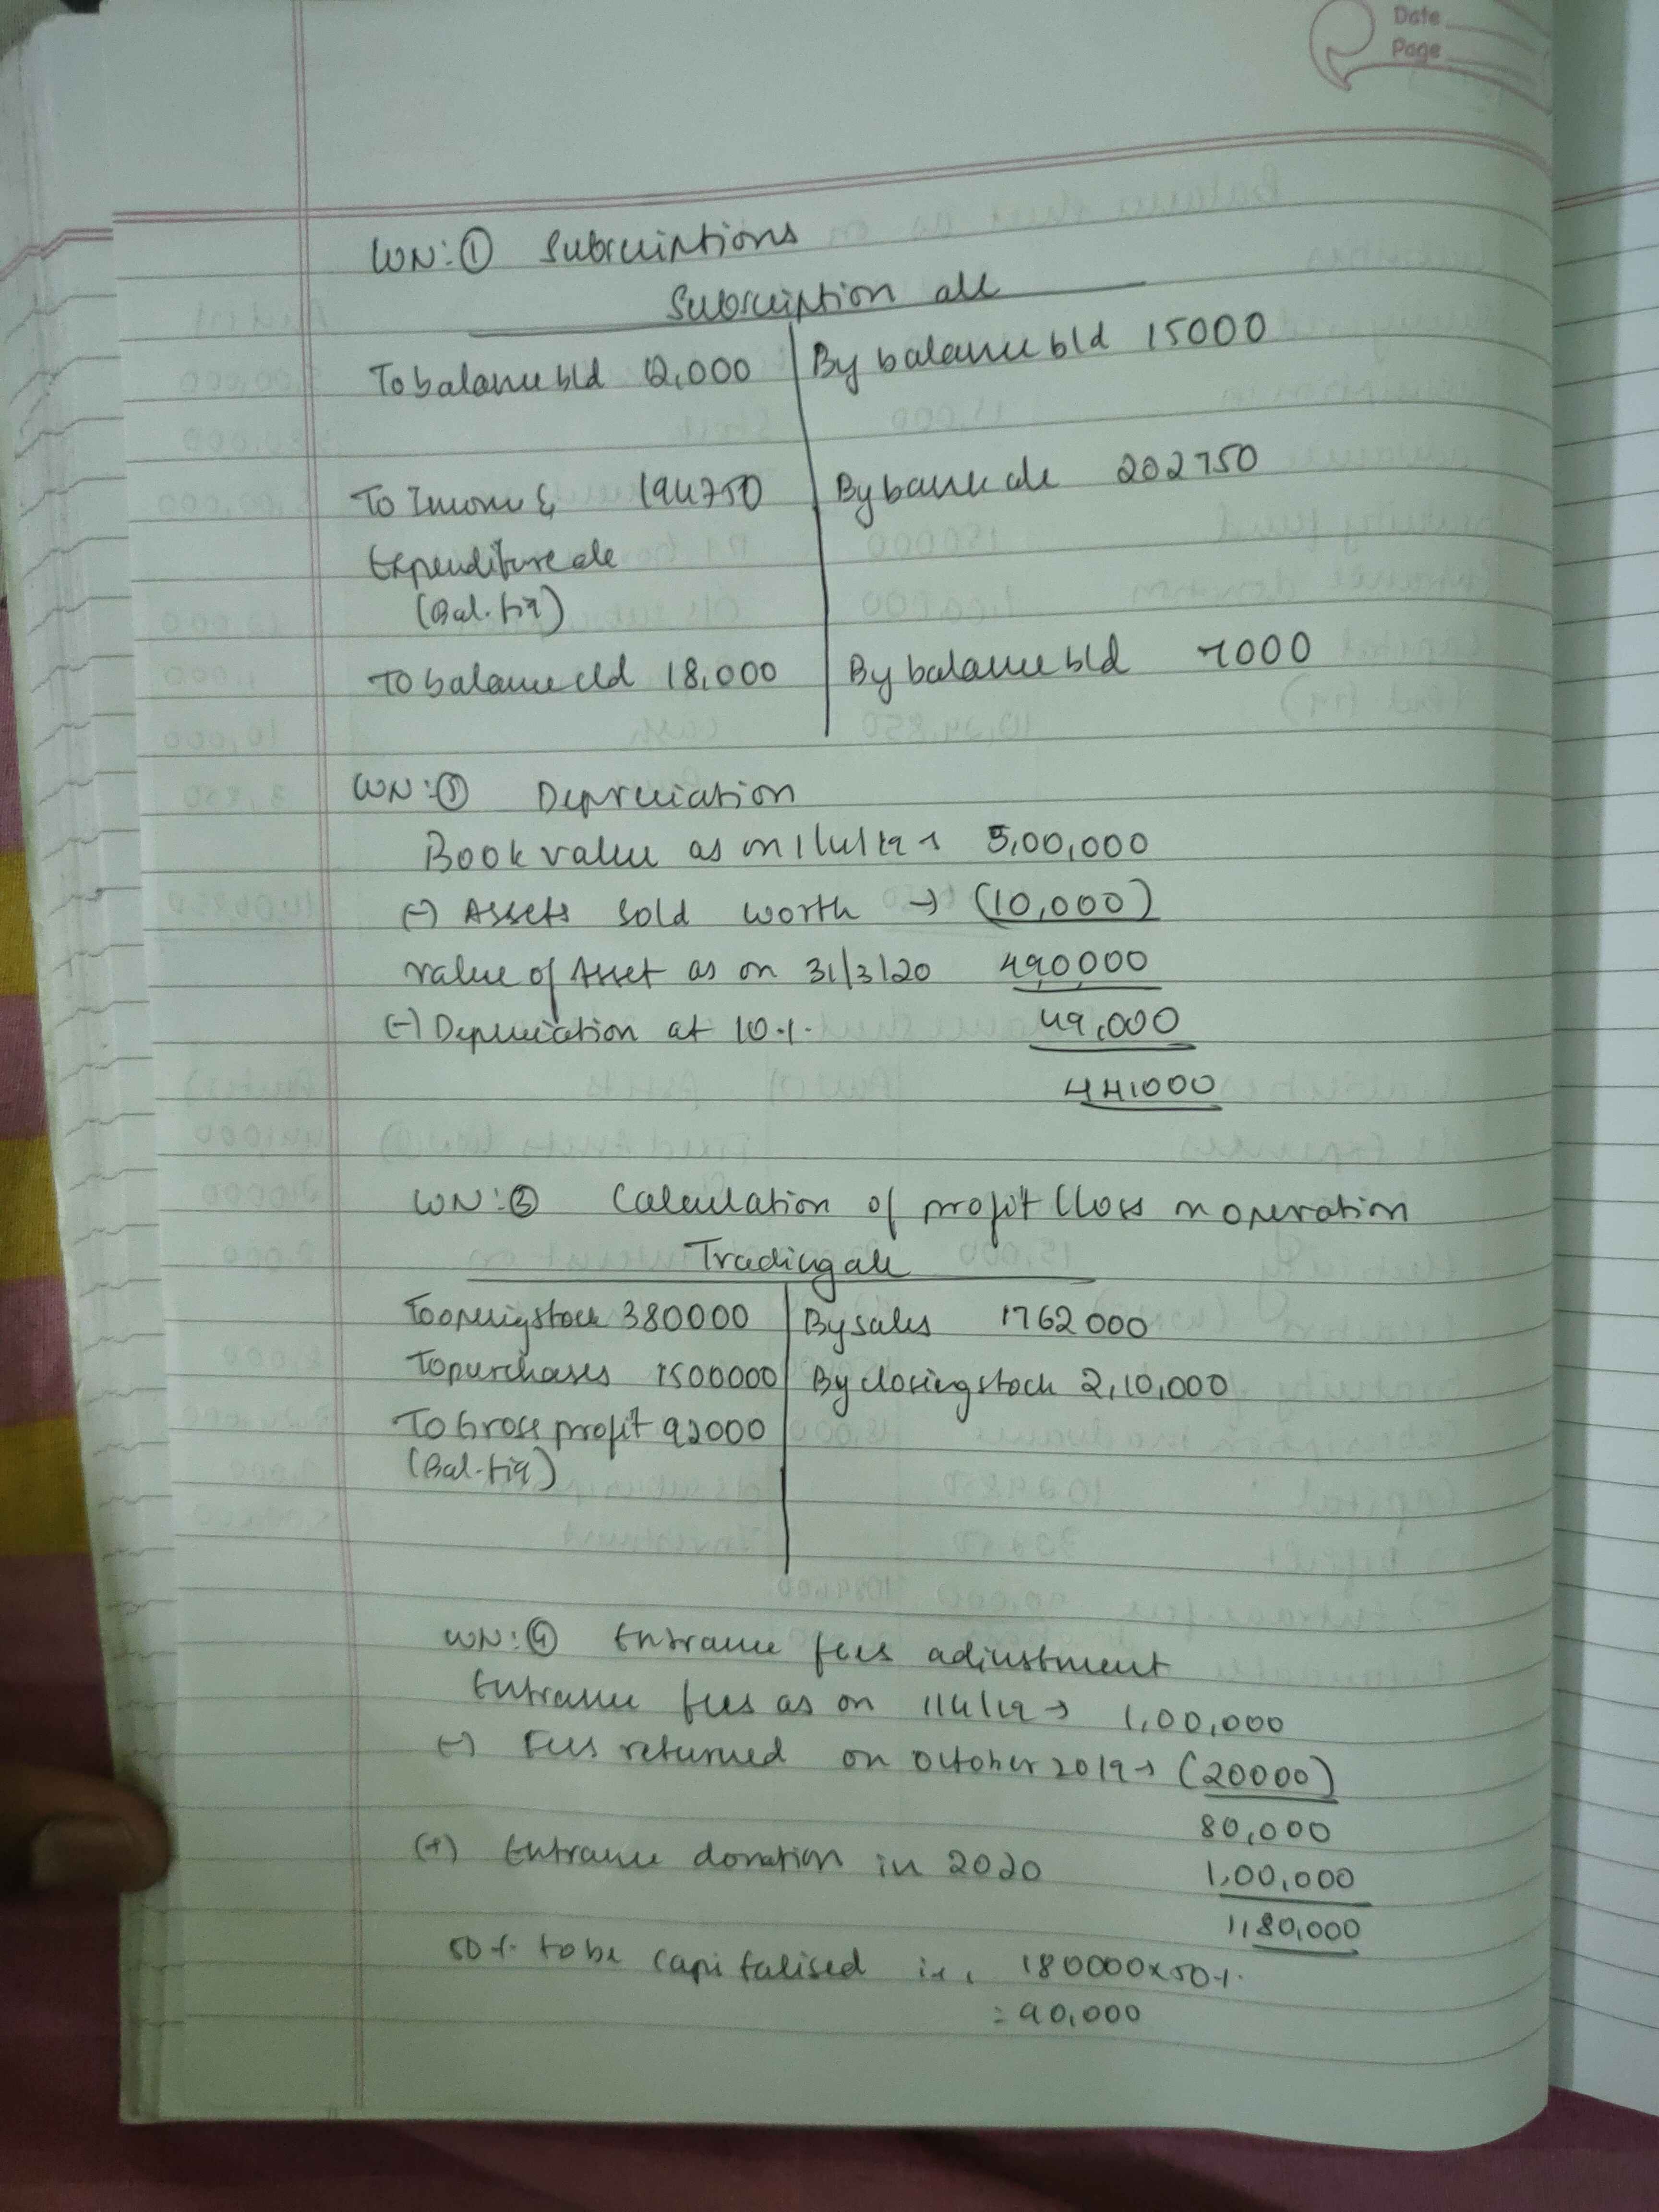 Date
Page
WN:① Subscriptions
Subscription a/c
To balance b/d 12,000 By balance b/d 15000
To Income & 194750 By bank a/c 202750
Expenditure a/c
(Bal. fig)
To balance c/d 18,000 By balance b/d 7000
WN:③ Depreciation
Book value as on 1/4/19 → 5,00,000
(-) Assets sold worth → (10,000)
value of Asset as on 31/3/20 490000
(-) Depreciation at 10% 49,000
441000
WN:② Calculation of profit/loss on operation
Trading a/c
To opening stock 380000 By sales 1762000
To purchases 1500000 By closing stock 2,10,000
To Gross profit 92000
(Bal. fig)
WN:④ Entrance fees adjustment
Entrance fees as on 1/4/19 → 1,00,000
(-) Fees returned on October 2019 → (20000)
80,000
(+) Entrance donation in 2020 1,00,000
1,80,000
50% to be capitalised i.e, 180000x50%
= 90,000